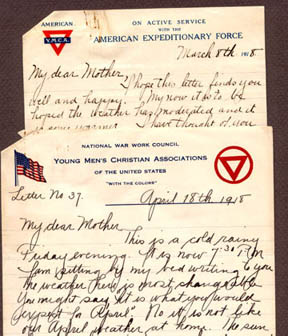 AMERICAN
Y.M.C.A.
ON ACTIVE SERVICE
WITH THE
AMERICAN EXPEDITIONARY FORCE
March 8th 1918
My dear Mother,
I hope this letter finds you
well and happy. My now it is to be
hoped the weather has moderated and it
is some warmer I have thought of you
NATIONAL WAR WORK COUNCIL
YOUNG MEN'S CHRISTIAN ASSOCIATIONS
OF THE UNITED STATES
"WITH THE COLORS"
Letter No 37.
April 18th 1918
My dear Mother
This is a cold rainy
Friday evening. It is now 7:30 P.M.
I am sitting by my bed writing to you
The weather here is most changeable
You might say it is what you would
expect for April. No it is not like
our April weather at home. The sun